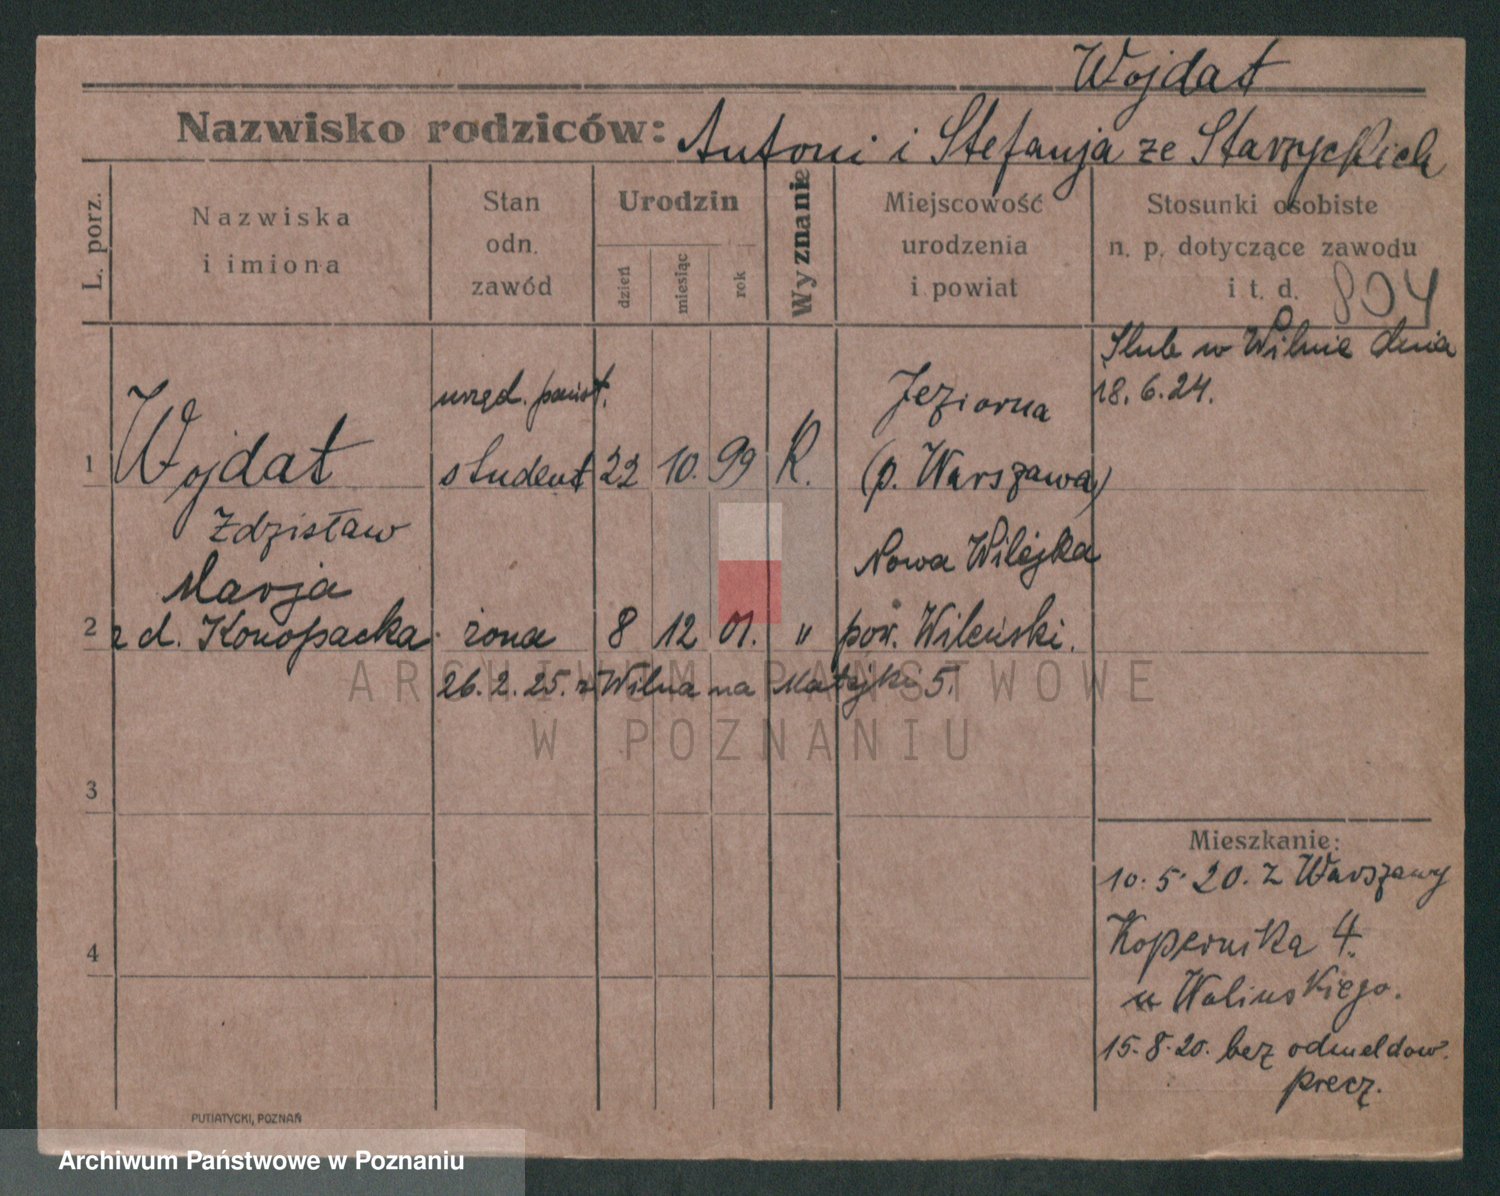 Wojdat
Nazwisko rodziców: Antoni i Stefanja ze Starzyckich
L. porz.
Nazwiska
i imiona
Stan
odn.
zawód
Urodzin
dzień
miesiąc
rok
Wyznanie
Miejscowość
urodzenia
i powiat
Stosunki osobiste
n. p. dotyczące zawodu
i t. d.
804
Ślub w Wilnie dnia
18.6.24.
urzęd. państ.
Jeziorna
1 Wojdat student 22 10. 99 R. (p. Warszawa)
Zdzisław
Nowa Wilejka
Marja
2 z d. Konopacka żona 8 12 01. " pow. Wileński.
26.2.25. z Wilna na Matejki 5.
3
4
Mieszkanie:
10.5.20. z Warszawy
Kopernika 4.
u Wolińskiego.
15.8.20. bez odmeldow.
precz.
PUTIATYCKI, POZNAŃ
ARCHIWUM PAŃSTWOWE
W POZNANIU
Archiwum Państwowe w Poznaniu